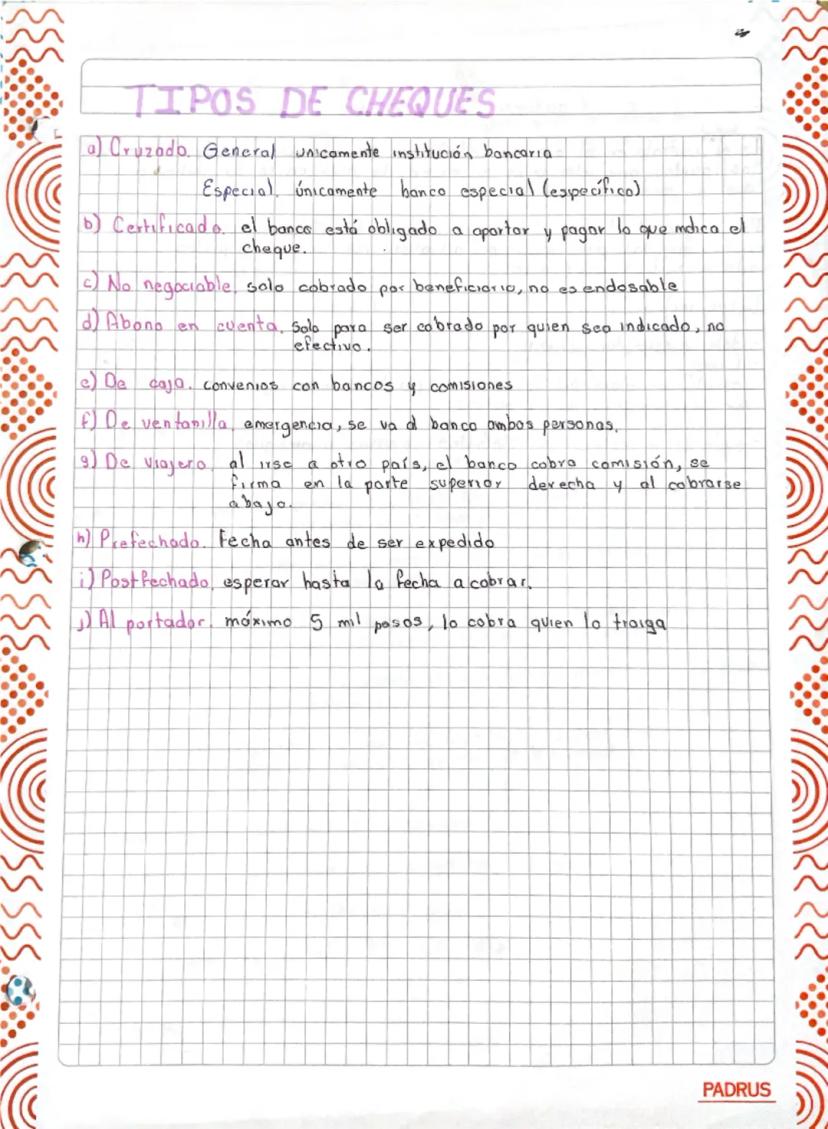 TIPOS DE CHEQUES
a) Cruzado. General unicamente institución bancaria
Especial. únicamente banco especial (específico)
b) Certificado. el banco está obligado a apartar y pagar lo que indica el
cheque.
c) No negociable. solo cobrado por beneficiario, no es endosable
d) Abono en cuenta. Solo para ser cobrado por quien sea indicado, no
efectivo.
e) De caja. convenios con bancos y comisiones
f) De ventanilla. emergencia, se va al banco ambos personas.
g) De viajero. al irse a otro país, el banco cobra comisión, se
firma en la parte superior derecha y al cobrarse
abajo.
h) Prefechado. Fecha antes de ser expedido
i) Postfechado. esperar hasta la fecha a cobrar.
j) Al portador. máximo 5 mil pesos, lo cobra quien lo traiga
PADRUS